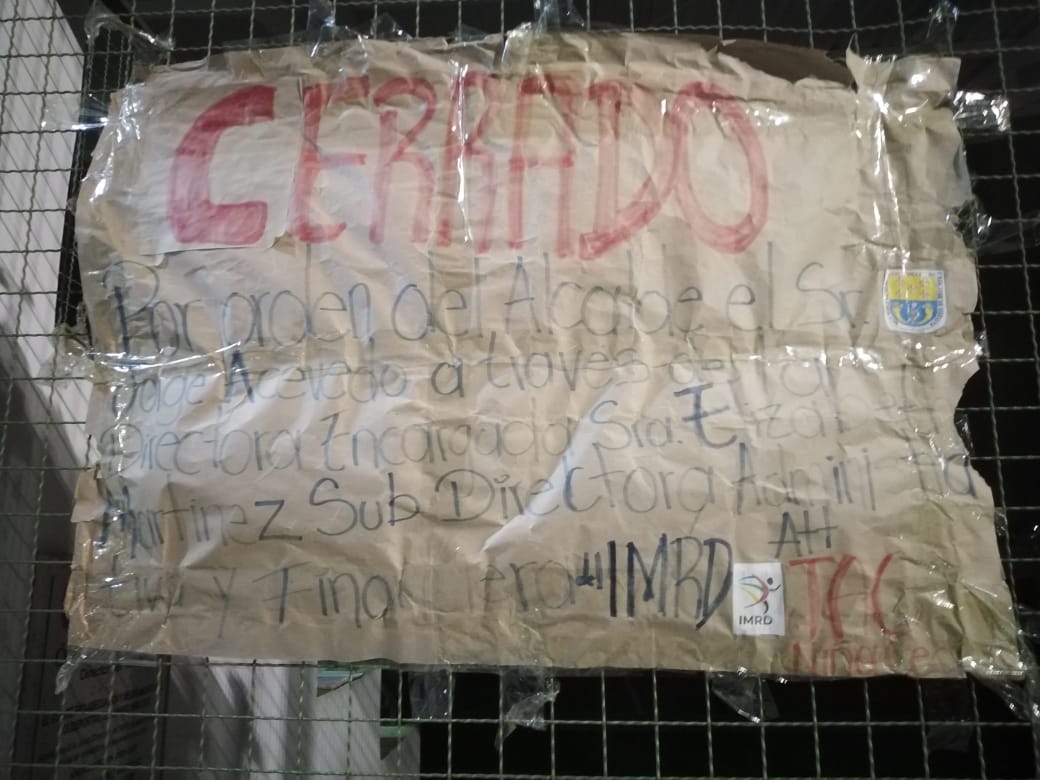 CERRADO
Por orden del Alcalde el Sr.
Jorge Acevedo a traves de la
Directora Encargada Sra. Elizabeth
Martinez Sub Directora Administra
tiva y Financiera del IMRD
IMRD
Att
TCC